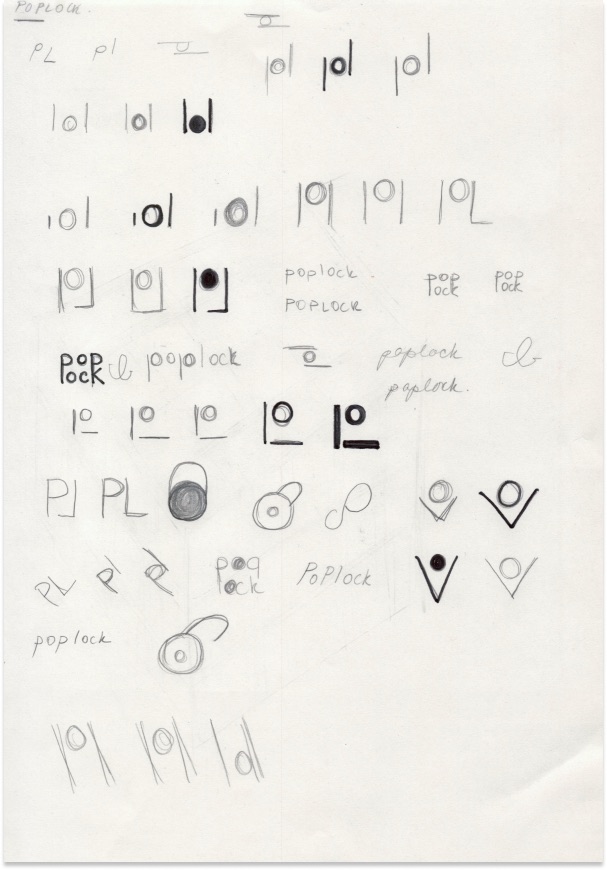 POPLOCK.
PL pl
poplock.
POPLOCK
POP
lock
POP
lock
POP
OCK
poplock
poplock
poplock.
PL PL
PL
POP
lock
PoPlock
poplock